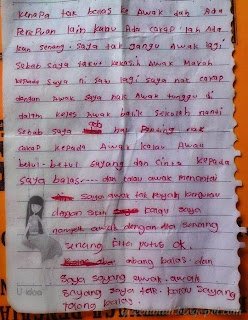 kenapa tak balas ke Awak dah Ada
Perempuan lain kalau Ada cakap lah Ada
kan senang. saya tak ganggu Awak lagi
sebab saya takut kekasih Awak Marah
kepada saya ni saw lagi saya nak cakap
dengan Awak saya nak Awak tunggu di
dalam kelas Awak balik sekolah nanti
sebab saya ada hal Penting nak
cakap kepada Awak kalau Awak
betul-betul sayang dan sinta kepada
saya balas---- dan kalau awak mencintai
saya awak tak payah bergurau
dengan kalau saya
nampak awak dengan dia senang
senang kita putus ok.
abang balas. dan
saya sayang awak. awak
sayang saya tak. kalau sayang
tolong balas.